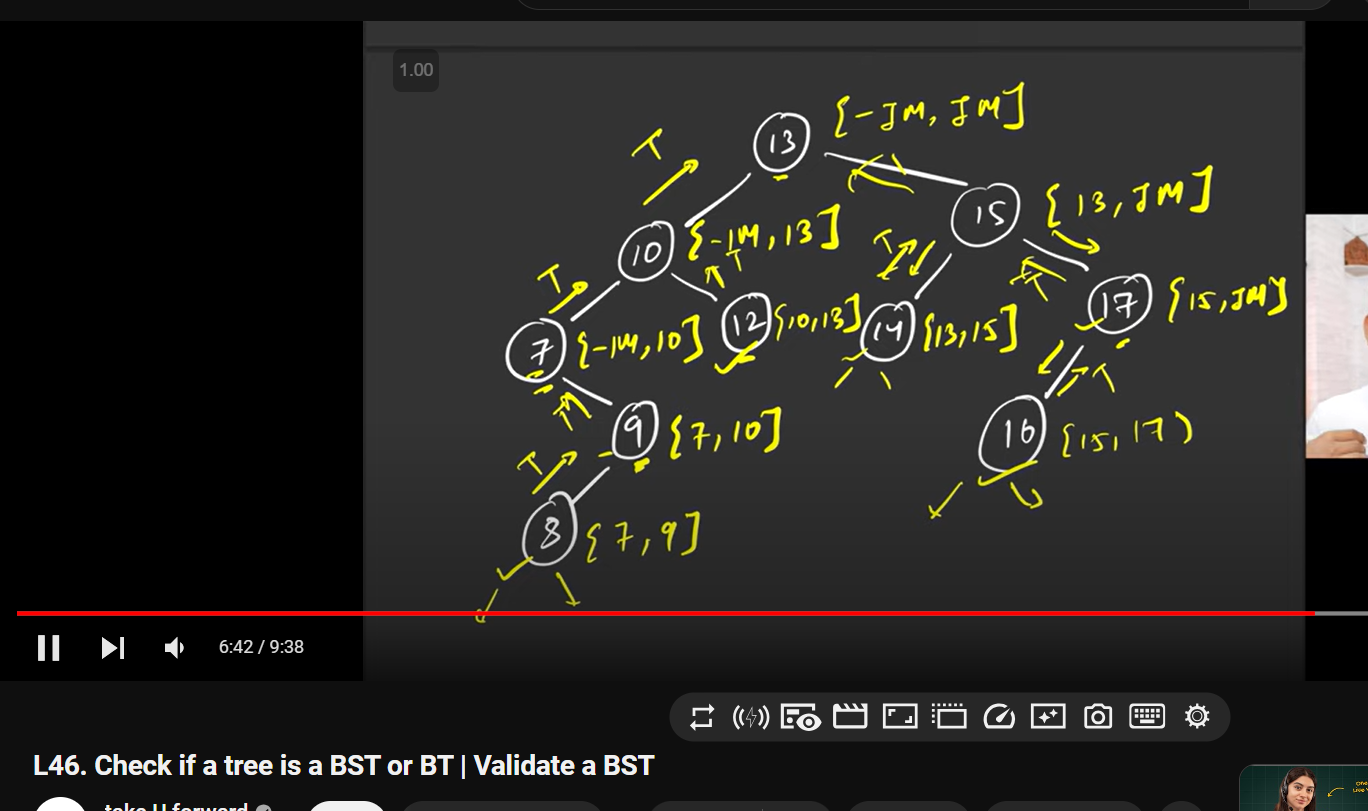 1.00
13 [-IM, IM]
T
10 [-IM, 13]
15 [13, IM]
T
T
T
7 [-IM, 10]
12 [10, 13]
14 [13, 15]
17 [15, IM]
T
T
T
9 [7, 10]
16 [15, 17)
T
8 [7, 9]
6:42 / 9:38
L46. Check if a tree is a BST or BT | Validate a BST
take U forward